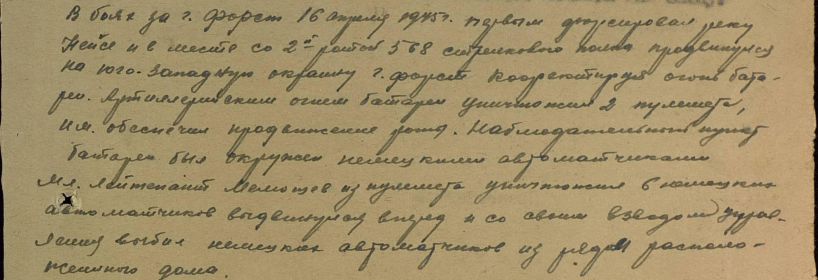 В боях за г. Форст 16 апреля 1945 г. первым форсировал реку
Нейсе и в месте со 2й ротой 568 стрелкового полка продвинулся
на юго-западную окраину г. Форст корректируя огонь бата-
реи. Артиллерийским огнем батареи уничтожил 2 пулемета,
и обеспечил продвижение роты. Наблюдательный пункт
батареи был окружен немецкими автоматчиками
Мл. лейтенант из пулемета уничтожил 6 немецких
автоматчиков выдвинулся вперед и со своим взводом управ-
ления выбил немецких автоматчиков из рядом располо-
женного дома.